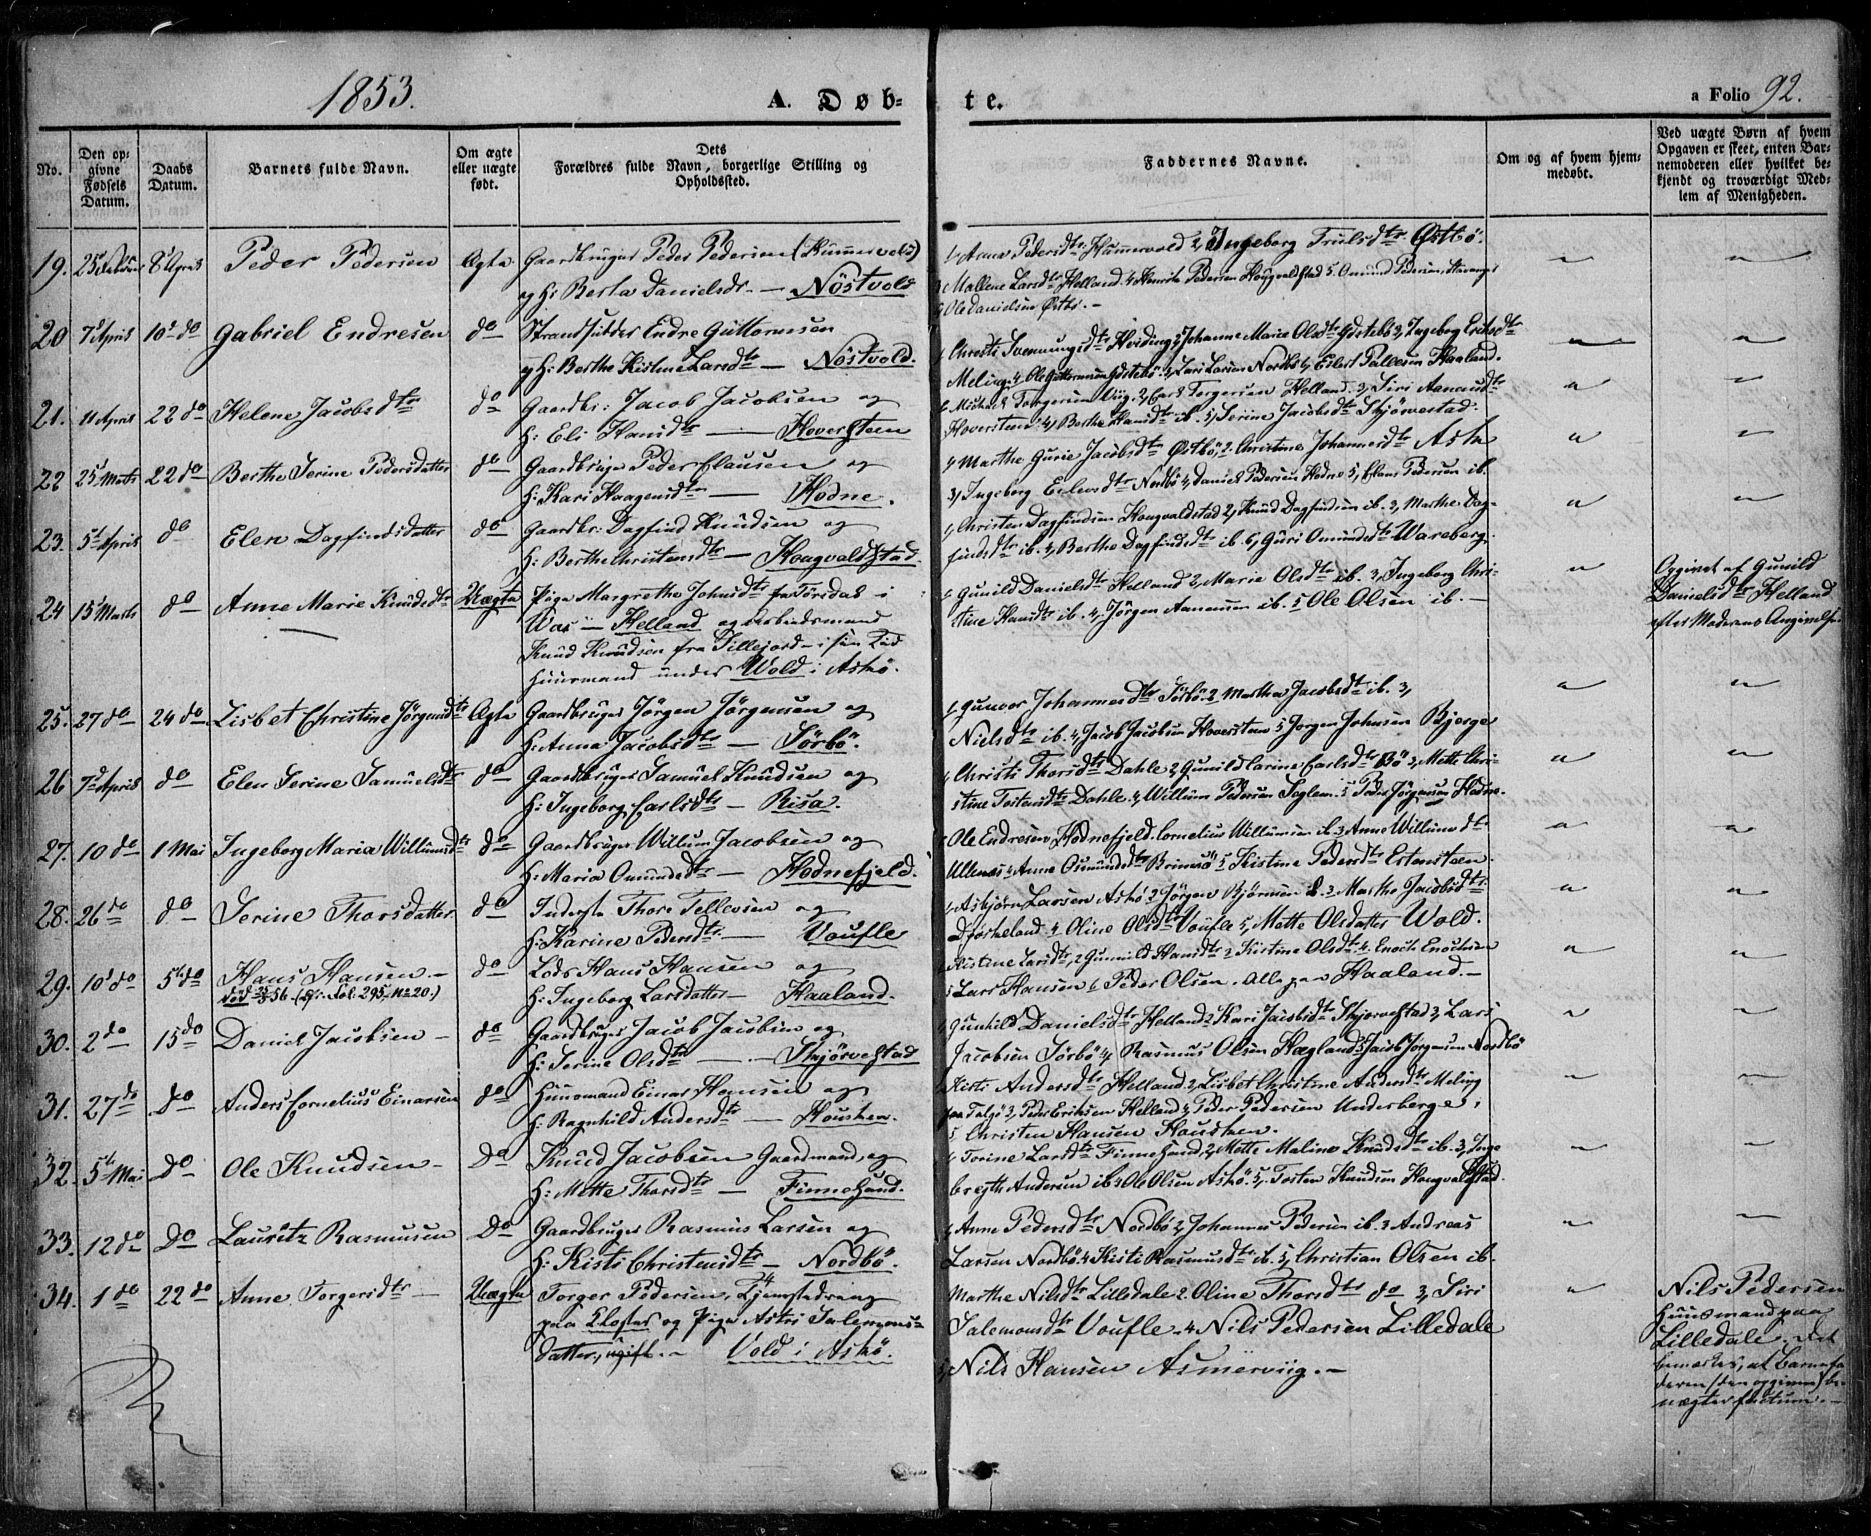 1853.
A. Døb-
te.
a Folio 92.
No.
Den op-
givne
Fødsels
Datum.
Daabs
Datum.
Barnets fulde Navn.
Om ægte
eller uægte
født.
Dets
Forældres fulde Navn, borgerlige Stilling og
Opholdssted.
Faddernes Navne.
Om og af hvem hjem-
medøbt.
Ved uægte Børn af hvem
Opgaven er skeet, enten Bar-
nemoderen eller hvilket be-
kjendt og troværdigt Med-
lem af Menigheden.
19. 8 April Peder Pedersen Ægte Gaardbruger Peder Pedersen
og H: Berta Danielsdr. — Nöstvold
1, Anna Pedersdtr 2, Ingeborg Trulsdtr Østbö.
Mallene Larsdtr Helland. 4 Henrik Pedersen Hougvaldstad 5. Omund Pedersen, Stavanger
6 Ole Danielsen Østbö. —
20 7 April 10 do Gabriel Endresen do Strandsidder Endre Guttormsen
og H: Berthe Kistine Larsdtr — Nöstvold.
1, Christi Johanne Marie Olsdtr 3, Ingeborg Eriksdtr
Meling. 4 Ole Guttormsen Eilert Pallesen Haaland.
21. 11 April 22 do Helene Jacobsdtr do Gaardbr: Jacob Jacobsen og
H: Eli Hansdtr — Hoversteen
1, Michael Torgersen Torgersen Helland. 3, Siri Aanensdtr
Hoversteen 4, Berthe Hansdtr ib. 5, Serine Jacobsdtr Skjörvestad.
22 25 Marts 22 do Berthe Serine Pedersdatter do Gaardbruger Peder Clausen og
H: Kari Haagensdtr — Hodne.
1, Marthe Gurie Jacobsdtr Østbö, 2. Christine Johannesdtr Askö
3, Ingeborg Nordbö 4, Daniel Pedersen Hodne 5, Claus Pedersen ib.
23. 5 April do Elen Dagfindsdatter do Gaardbr: Dagfind Knudsen og
H: Berthe Christensdtr — Hougvaldstad.
1, Christen Dagfindsen Hougvaldstad 2, Knud Dagfindsen ib. 3, Marthe Dag-
findsdtr ib. 4, Berthe Dagfindsdtr ib. Guri Omundsdtr Wareberg.
24 15 Marts do Anne Marie Knudsdtr Uægte Pige Margrethe Johnsdtr fra Torsdal i
— Helland og Arbeidsmand
Knud Knudsen fra Sillejord — i sin Tid
Huusmand under Wold i Askö.
1, Gunild Danielsdtr Helland 2, Marie Olsdtr ib. 3, Ingeborg Chri-
stine Hansdtr ib. 4, Jörgen Aanensen ib. 5 Ole Olsen ib. —
Opgivet af Gunild
Danielsdtr Helland
efter Moderens Angivelse.
25. 27 do 24 do Lisbet Christine Jörgensdtr Ægte Gaardbruger Jörgen Jörgensen og
H: Anna Jacobsdtr — Sörbö.
1, Gunvor Johannesdtr Sörbö. 2 Martha Jacobsdtr ib. 3,
Nielsdtr ib. 4, Jacob Jacobsen Hoversteen 5 Jörgen Johnsen Bjerge
26 7d April do Elen Serine Samuelsdtr do Gaardbruger Samuel Knudsen og
H: Ingeborg Carlsdtr — Risa.
1, Christi Thorsdtr Dahle 2, Gunild Carine Carlsdtr Bö 3, Mette Chri-
stine Tostensdtr Dahle. 4, Willum Pedersen 5 Peder Jörgensen Hodne.
27. 10 do 1 Mai Ingeborg Maria Willumsdtr do Gaardbruger Willum Jacobsen og
H: Maria Omundsdtr — Hodnefjeld.
1 Ole Endresen Hodnefjeld. Cornelius Willumsen ib 3 Anne Willumsdtr
Ullenes 4 Anne Osmundsdtr Brimsö 5 Kistine Pedersdtr Estensteen.
28. 26 do do Serine Thorsdatter do Inderste Thore Tellevsen og
H: Karine Pedersdtr — Voufle
1, Asbjörn Larsen Askö 2 Jörgen Björnsen ib. 3 Marthe Jacobsdtr
4 Oline Olsdtr Voufle 5, Mette Olsdatter Wold.
29. 10 do 5 do Hans Hansen — do Lods Hans Hansen og
H: Ingeborg Larsdatter — Haaland.
død 56 — (cfr. Fol. 295, No 20.)
1 Kistene Larsdtr, 2 Gunnild Hansdtr 3 Kistine Olsdtr 4. Enoch Enochsen
5 Lars Hansen 6 Peder Olsen. Alle paa Haaland. —
30. 2 do 15 do Daniel Jacobsen — do Gaardbruger Jacob Jacobsen og
H: Serine Olsdtr — Skjörvestad
1, Gunhild Danielsdtr Helland 2 Kari Jacobsdtr Skjörvestad 3, Lars
Jacobsen Sörbö 4, Rasmus Olsen 5 Jacob Jörgensen Nordbö
31. 27 do Do Anders Cornelius Einarsen do Huusmand Einar Hansen og
H: Ragnhild Andersdtr — Housken.
1, Kisti Andersdtr Helland 2, Lisbet Christine Andersdtr Meling
paa Talgö 3, Peder Eriksen Helland 4, Peder Pedersen Underberge,
5 Christen Hansen Housken.
32. 5 Mai Do Ole Knudsen — Do Knud Jacobsen Gaardmand, og
H: Mette Thorsdtr — Finnesand.
1 Torine Larsdtr Finnesand, 2, Mette Maline Knudsdtr ib. 3, Inge
bregth Andersen ib Ole Olsen Askö. 5, Tosten Knudsen Hougvaldstad.
33. 12 do Do Lauritz Rasmusen Do Gaardbruger Rasmus Larsen og
H: Kisti Christensdtr — Nordbö.
1, Anne Pedersdtr Nordbö 2, Johannes Pedersen ib. 3 Andreas
Larsen Nordbö. 4 Kisti Rasmusdtr ib. 5, Christian Olsen ib.
34. 1 do 22 do Anne Torgersdtr — Uægte Torger Pedersen, Tjenstedreng
paa Kloster og Pige Astri Salemons-
datter, ugift. — Vold i Askö.
Marthe Nilsdtr Lilledale 2. Oline Thorsdtr do 3, Siri
Salemonsdtr Voufle. 4 Nils Pedersen Lilledale
5, Nils Hansen Asmervig. —
Nils Pedersen
Huusmand paa
Lilledale. Det
bemærkes, at Barnefa
deren (den opgivne) be-
nægter factum. —